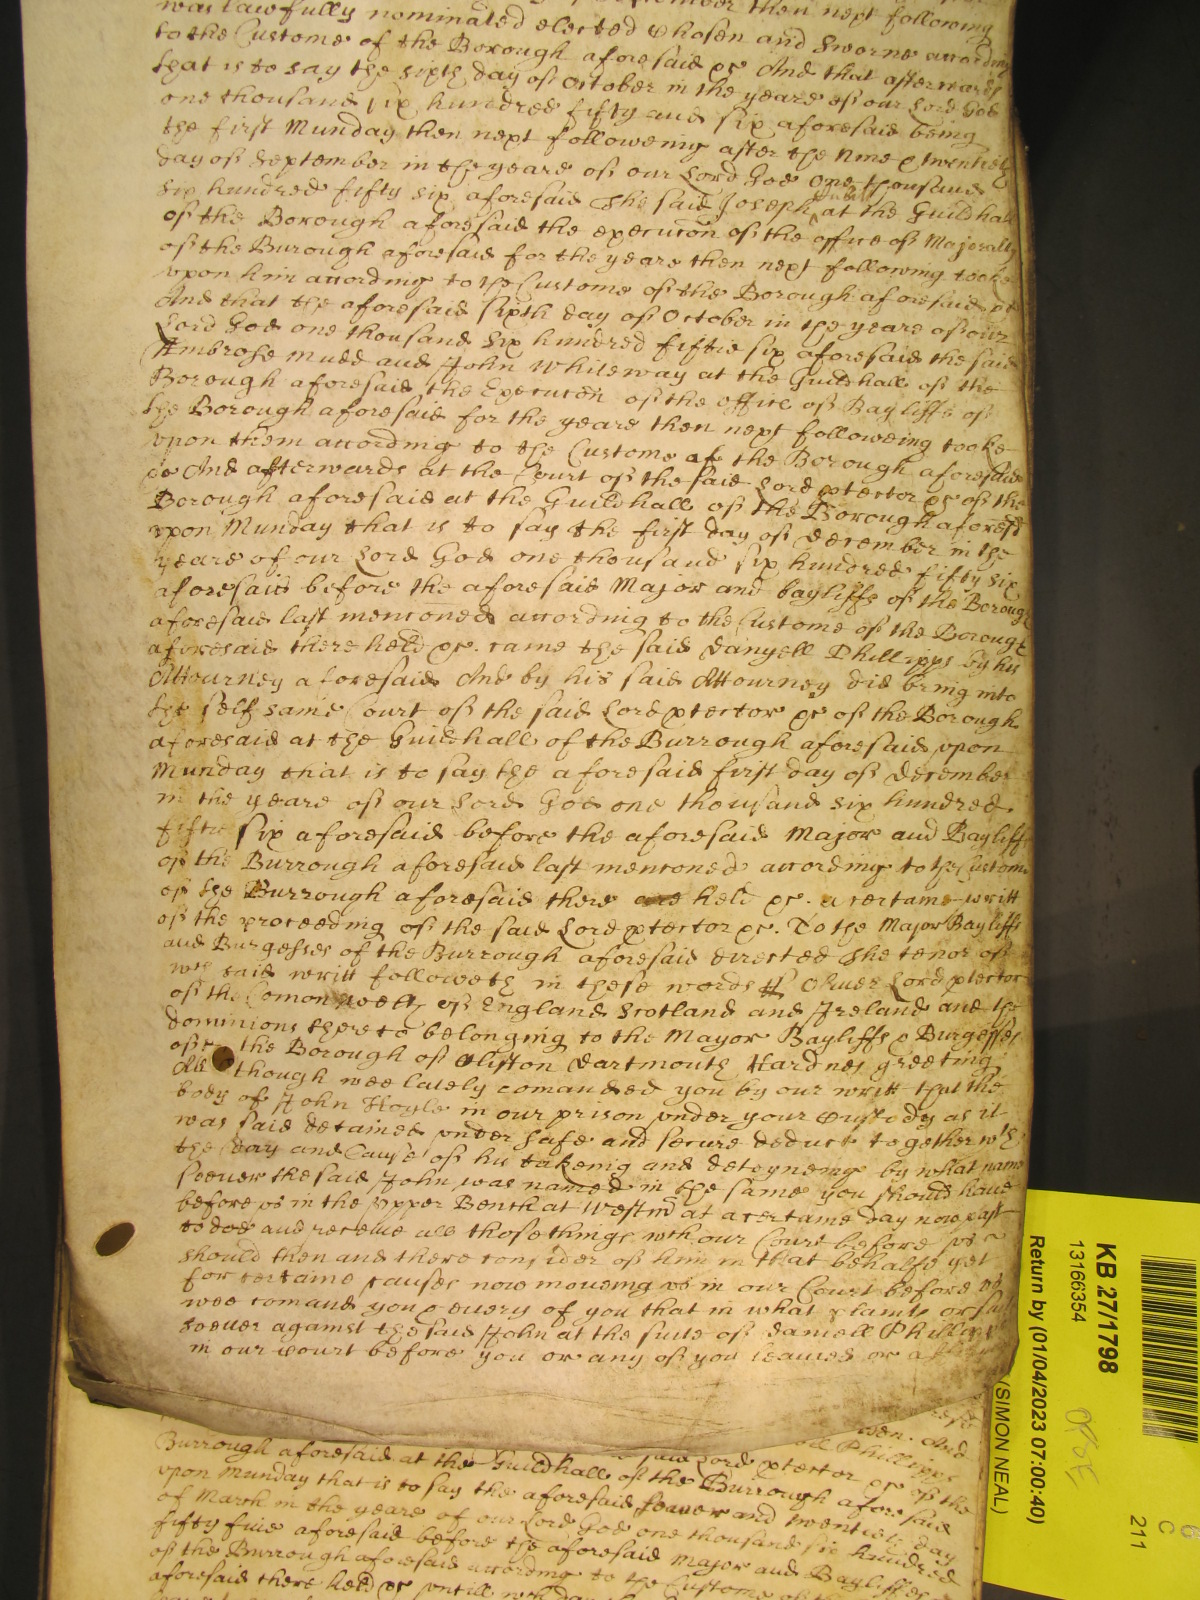 was lawfully nominated elected Chosen and Sworne according
to the Custome of the Borough aforesaid &c And that afterwards
that is to say the sixth day of October in the yeare of our Lord God
one thousand six hundred fifty and six aforesaid being
the first Munday then next followeing after the Nine & twentieth
day of September in the yeare of our Lord God One thousand
six hundred fifty six aforesaid The said Joseph at the Guildhall
of the Borough aforesaid the execucon of the office of Majoralty
of the Burough aforesaid for the yeare then next following tooke
vpon him according to the Custome of the Borough aforesaid &c
And that the aforesaid sixth day of October in the yeare of our
Lord God one thousand six hundred fiftie six aforesaid the said
Ambrose Mudd and John Whiteway at the Guildhall of the
Borough aforesaid the Execucon of the office of Bayliffs of
the Borough aforesaid for the yeare then next followeing tooke
vpon them according to the Custome of the Borough aforesaid
&c And afterwards at the Court of the said Lord ptector &c of the
Borough aforesaid at the Guildhall of the Borough aforesd
vpon Munday that is to say the first day of December in the
yeare of our Lord God one thousand six hundred fifty six
aforesaid before the aforesaid Major and bayliffs of the Borough
aforesaid last mencioned according to the Custome of the Borough
aforesaid there held &c. came the said Danyell Phillipps by his
Attourney aforesaid And by his said Attourney did bring into
the self same Court of the said Lord ptector &c of the Borough
aforesaid at the Guildhall of the Burrough aforesaid vpon
Munday that is to say the aforesaid first day of December
in the yeare of our Lord God one thousand six hundred
fiftie six aforesaid before the aforesaid Major and Bayliffs
of the Burrough aforesaid last mencioned according to the Custome
of the Burrough aforesaid there held &c. a certaine writt
of the proceeding of the said Lord ptector &c. To the Major Bayliffs
and Burgesses of the Burrough aforesaid directed The tenor of
wch said writt followeth in these words ss Oliver Lord ptector
of the Comonwealth of England Scotland and Ireland and the
dominions thereto belonging to the Mayor Bayliffs & Burgesses
of the Borough of Clifton Dartmouth Hardnes greeting
Although wee lately comanded you by our writt that the
body of John Hoyle in our prison vnder your Custody as it
was said detained vnder safe and secure deduct together wth
the Day and Cause of his takeing and deteyneing by what name
soever the said John was named in the same you should have
before vs in the vpper Bench at Westmr at a certaine day now past
to doe and receive all those things wch our Court before vs
should then and there consider of him in that behalfe yet
for certaine causes now moueing vs in our Court before vs
wee comand you & euery of you that in what plaint or suit
soeuer against the said John at the suite of Daniell Phillipps
in our Court before you or any of you leavied or
And
Phillipps
said Lord ptector &c of the
Burrough aforesaid at the Guildhall of the Burrough aforesaid
vpon Munday that is to say the aforesaid seaven and twentieth day
of March in the yeare of our Lord God one thousand six hundred
fifty fiue aforesaid before the aforesaid Major and Bayliffes
of the Burrough aforesaid according to the Custome
aforesaid there held &c vntill
KB 27/1798
13166354
Return by (01/04/2023 07:00:40)
(SIMON NEAL)
C
211